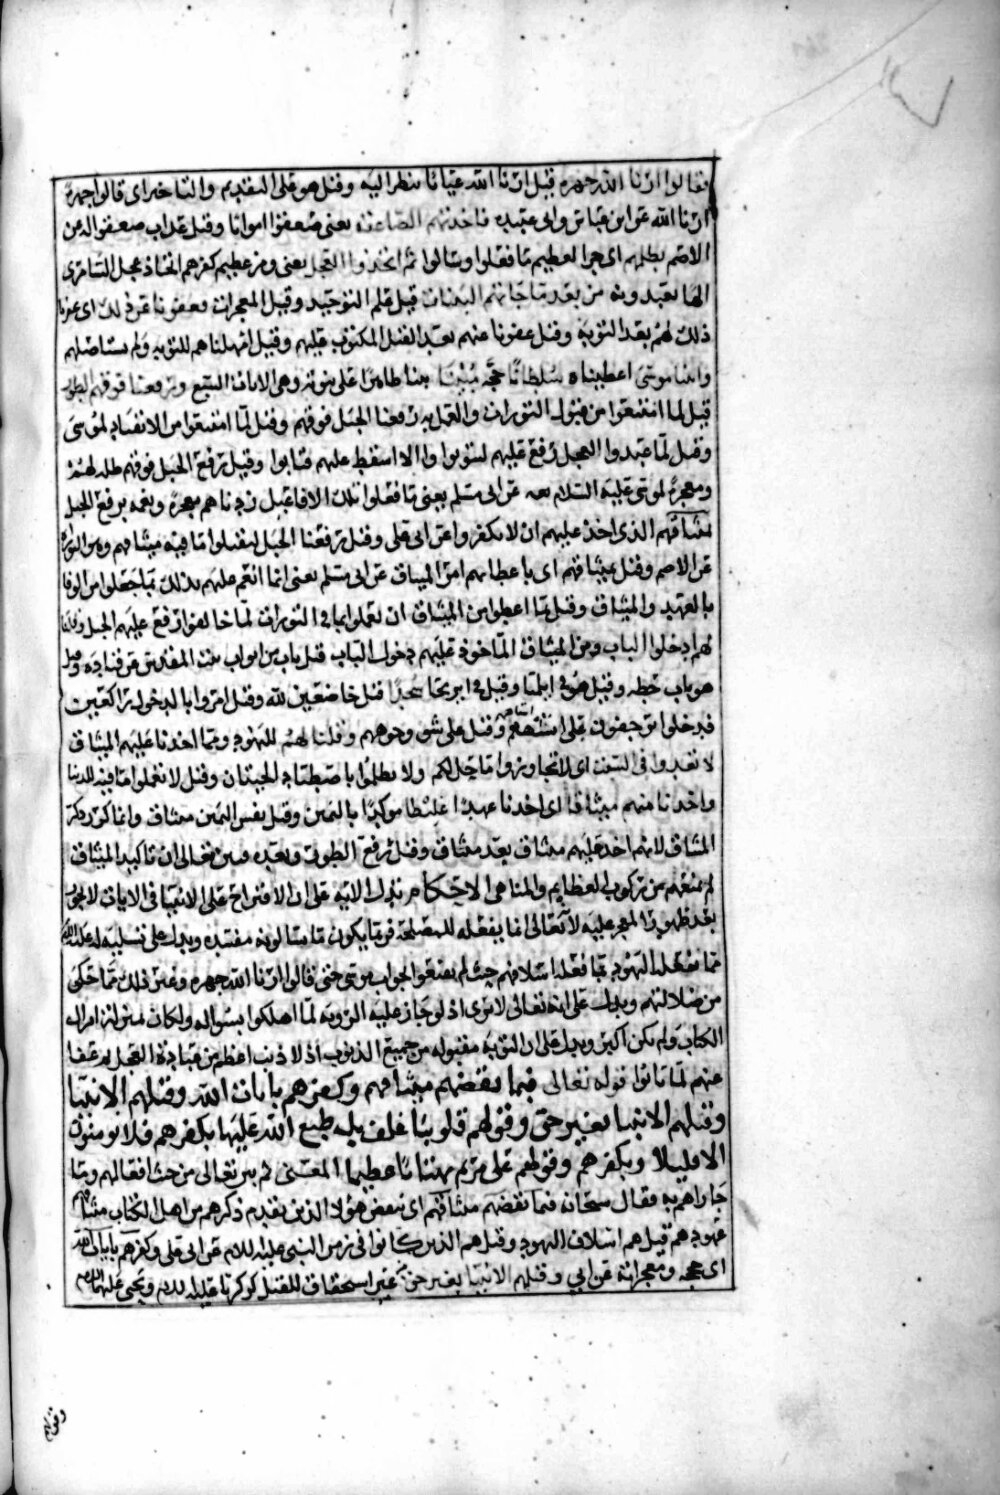 فقالوا ارنا الله جهرة قيل ارنا الله عيانا ننظر اليه وقيل هو على التقديم والتاخير اى قالوا جهرة
ارنا الله عن ابن عباس وابى عبيده فاخذتهم الصاعقه يعنى صعقوا امواتا وقيل عذاب صعقوا له عن
الاصم بظلمهم اى جزا لعظيم ما فعلوا وسالوا ثم اتخذوا العجل يعنى ومن عظيم كفرهم اتخاذ عجل السامرى
الها يعبدونه من بعد ما جاتهم البينات قيل علم التوحيد وقيل المعجزات فعفونا عن ذلك اى غفرنا
ذلك لهم بعد التوبة وقيل عفونا عنهم بعد القتل المكتوب عليهم وقيل امهلناهم للتوبه ولم نستاصلهم
واتينا موسى اعطيناه سلطانا حجة مبينا بينا ظاهرا على نبوته وهى الايات التسع ورفعنا فوقهم الطور
قيل لما امتنعوا من قبول التوراة والعمل به رفعنا الجبل فوقهم وقيل لما امتنعوا من الانقياد لموسى
وقيل لما عبدوا العجل رفع عليهم ليتوبوا والا اسقط عليهم فتابوا وقيل رفع الجبل فوقهم ظلة لهم
ومعجزة لموسى عليه السلام عن ابى مسلم يعنى ما فعلوا تلك الافاعيل زدناهم معجزة ونعمه برفع الجبل
بميثاقهم الذى اخذ عليهم ان لا يكفروا عن ابى على وقيل رفعنا الجبل ليقبلوا ما فيه ميثاقهم وهو التوراة
عن الاصم وقيل بميثاقهم اى باعطايهم امن الميثاق عن ابى مسلم يعنى انما انعم عليهم بذلك بما جعلوا من الوفا
بالعهد والميثاق وقيل بما اعطوا من الميثاق ان يعملوا بما فى التوراة لما خالفوا رفع عليهم الجبل وقلنا
لهم ادخلوا الباب ومن الميثاق الماخوذ عليهم دخول الباب قيل باب من ابواب بيت المقدس عن قتادة وقيل
هو باب حطه وقيل هو فى ايليا وقيل فى اريحا سجدا قيل خاضعين لله وقيل امروا بالدخول راكعين
فدخلوا يزحفون على استاههم وقيل على شق وجوههم وقلنا لهم لليهود ومما اخذنا عليهم الميثاق
لا تعدوا فى السبت اى لا تتجاوزوا ما حل لكم ولا تظلموا باصطياد الحيتان وقيل لا تعملوا ما فيه للدنيا
واخذنا منهم ميثاقا اى اخذنا عهدا غليظا موكدا باليمين وقيل نفس اليمين ميثاق وانما كرر ذكر
الميثاق لانهم اخذ عليهم ميثاق بعد ميثاق وقيل رفع الطور وبعده فبين تعالى ان تاكيد الميثاق
لم يمنعهم من ركوب العظايم والمناهى الاحكام تدل الاية على ان الاقتراح على الانبيا فى الايات لا يجوز
بعد ظهور المعجز عليه لانه تعالى انما يفعله للمصلحة فربما يكون ما سالوه مفسده ويدل على تسليه له عليه السلام
مما يفعله اليهود بما فعله اسلافهم حيث لم يقنعوا بجواب موسى حتى قالوا ارنا الله جهره وغير ذلك مما حكى
من ضلالتهم ويدل على انه تعالى لا يرى اذ لو جاز عليه الرويه لما اهلكوا بسواله ولكان بمنزلة انزال
الكتاب ولم يكن اكبر ويدل على ان التوبه مقبوله من جميع الذنوب اذ لا ذنب اعظم من عبادة العجل ثم عفا
عنهم لما تابوا قوله تعالى فبما نقضهم ميثاقهم وكفرهم بايات الله وقتلهم الانبيا
وقتلهم الانبيا بغير حق وقولهم قلوبنا غلف بل طبع الله عليها بكفرهم فلا يومنون
الا قليلا وبكفرهم وقولهم على مريم بهتانا عظيما المعنى ثم بين تعالى من خبث افعالهم وما
جازاهم به فقال سبحانه فبما نقضهم ميثاقهم اى نقض هولا الذين تقدم ذكرهم من اهل الكتاب ميثاقهم
عهودهم قيل هم اسلاف اليهود وقيل هم الذين كانوا فى زمن النبى عليه السلام عن ابى على وكفرهم بايات الله
اى حججه ومعجزاته عن ابى وقتلهم الانبيا بغير حق غير استحقاق للقتل كزكريا عليه السلام ويحيى عليهما السلام
وقولهم